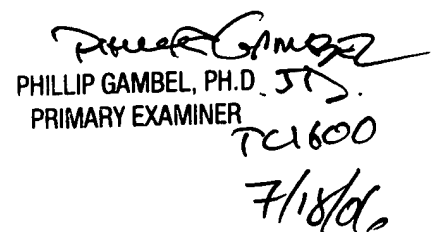 Phillip Gambel
PHILLIP GAMBEL, PH.D. JD.
PRIMARY EXAMINER
TC1600
7/18/06